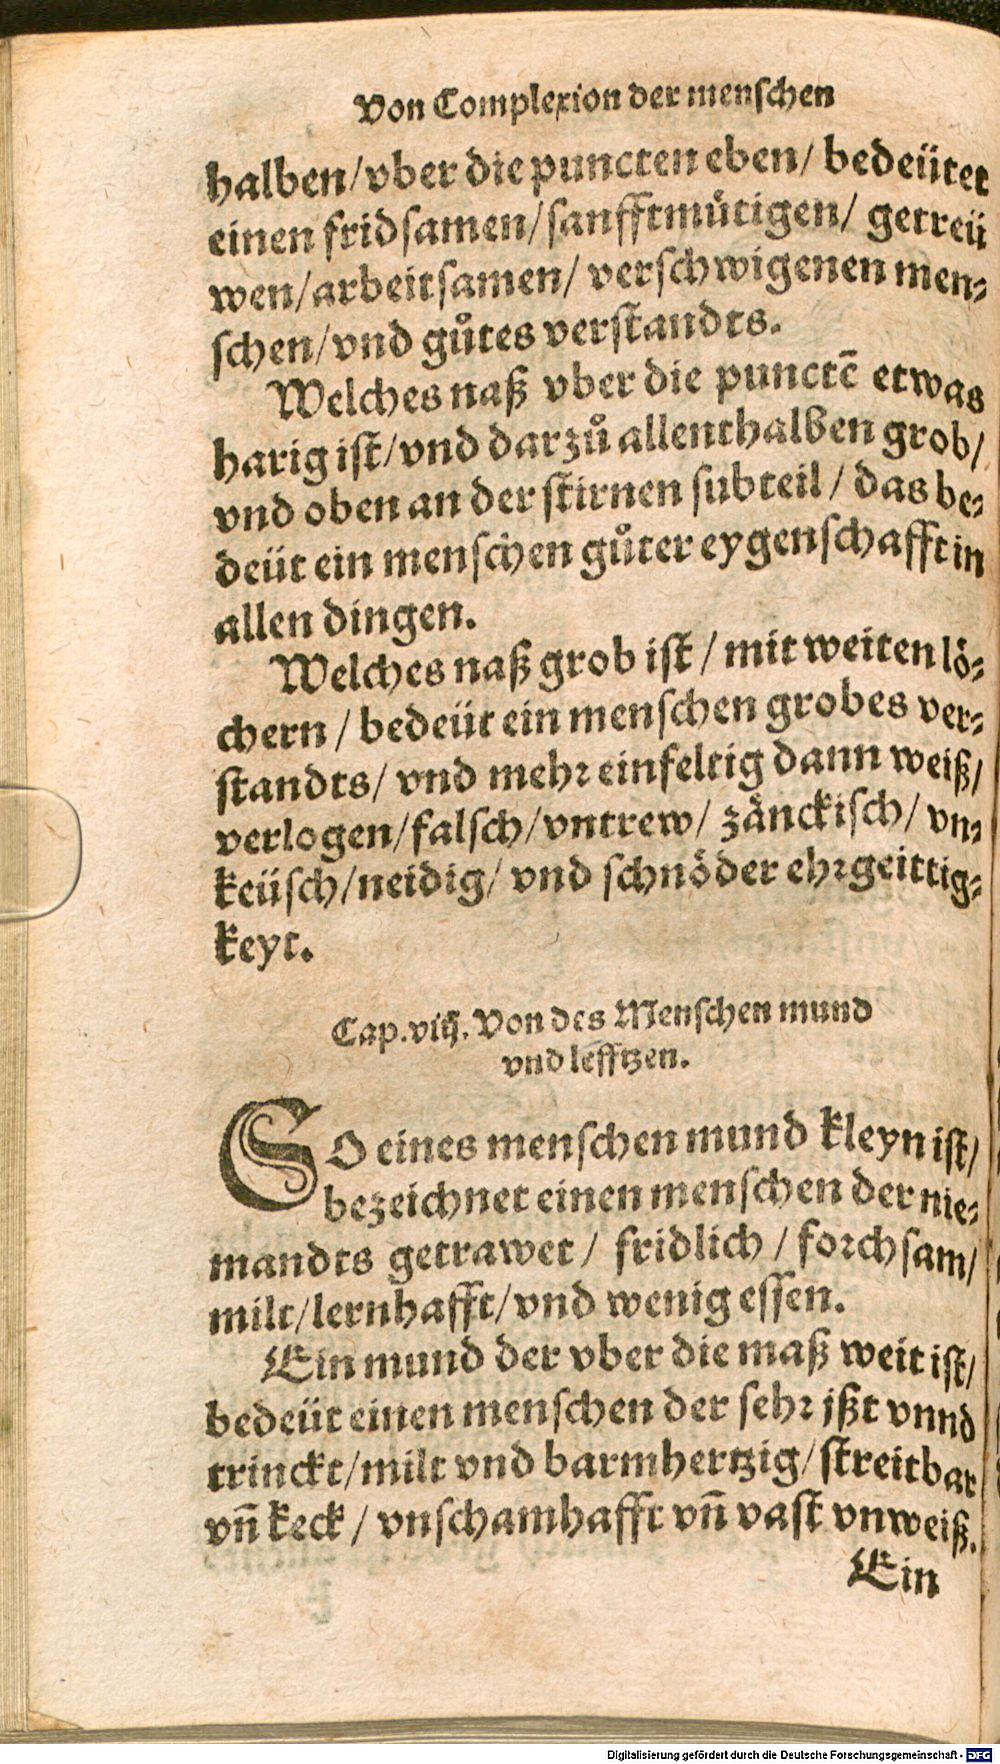 Von Complexion der menschen
halben/vber die puncten eben/ bedeütet
einen fridsamen/sanfftmütigen/ getreü
wen/arbeitsamen/ verschwigenen men⸗
schen/vnd gůtes verstandts.
Welches naß vber die punctē etwas
harig ist/vnd darzů allenthalben grob/
vnd oben an der stirnen subteil / das be⸗
deüt ein menschen gůter eygenschafft in
allen dingen.
Welches naß grob ist / mit weiten lö⸗
chern / bedeüt ein menschen grobes ver⸗
standts/ vnd mehr einfeltig dann weiß/
verlogen/falsch/vntrew/ zänckisch/ vn⸗
keüsch/neidig/ vnd schnöder ehrgeittig⸗
keyt.
Cap.viij. Von des Menschen mund
vnd lefftzen.
SO eines menschen mund kleyn ist/
bezeichnet einen menschen der nie⸗
mandts getrawet / fridlich / forchsam/
milt/lernhafft/vnd wenig essen.
Ein mund der vber die maß weit ist/
bedeüt einen menschen der sehr jßt vnnd
trinckt/milt vnd barmhertzig/streitbar
vn̄ keck / vnschamhafft vn̄ vast vnweiß.
Ein
Digitalisierung gefördert durch die Deutsche Forschungsgemeinschaft - DFG